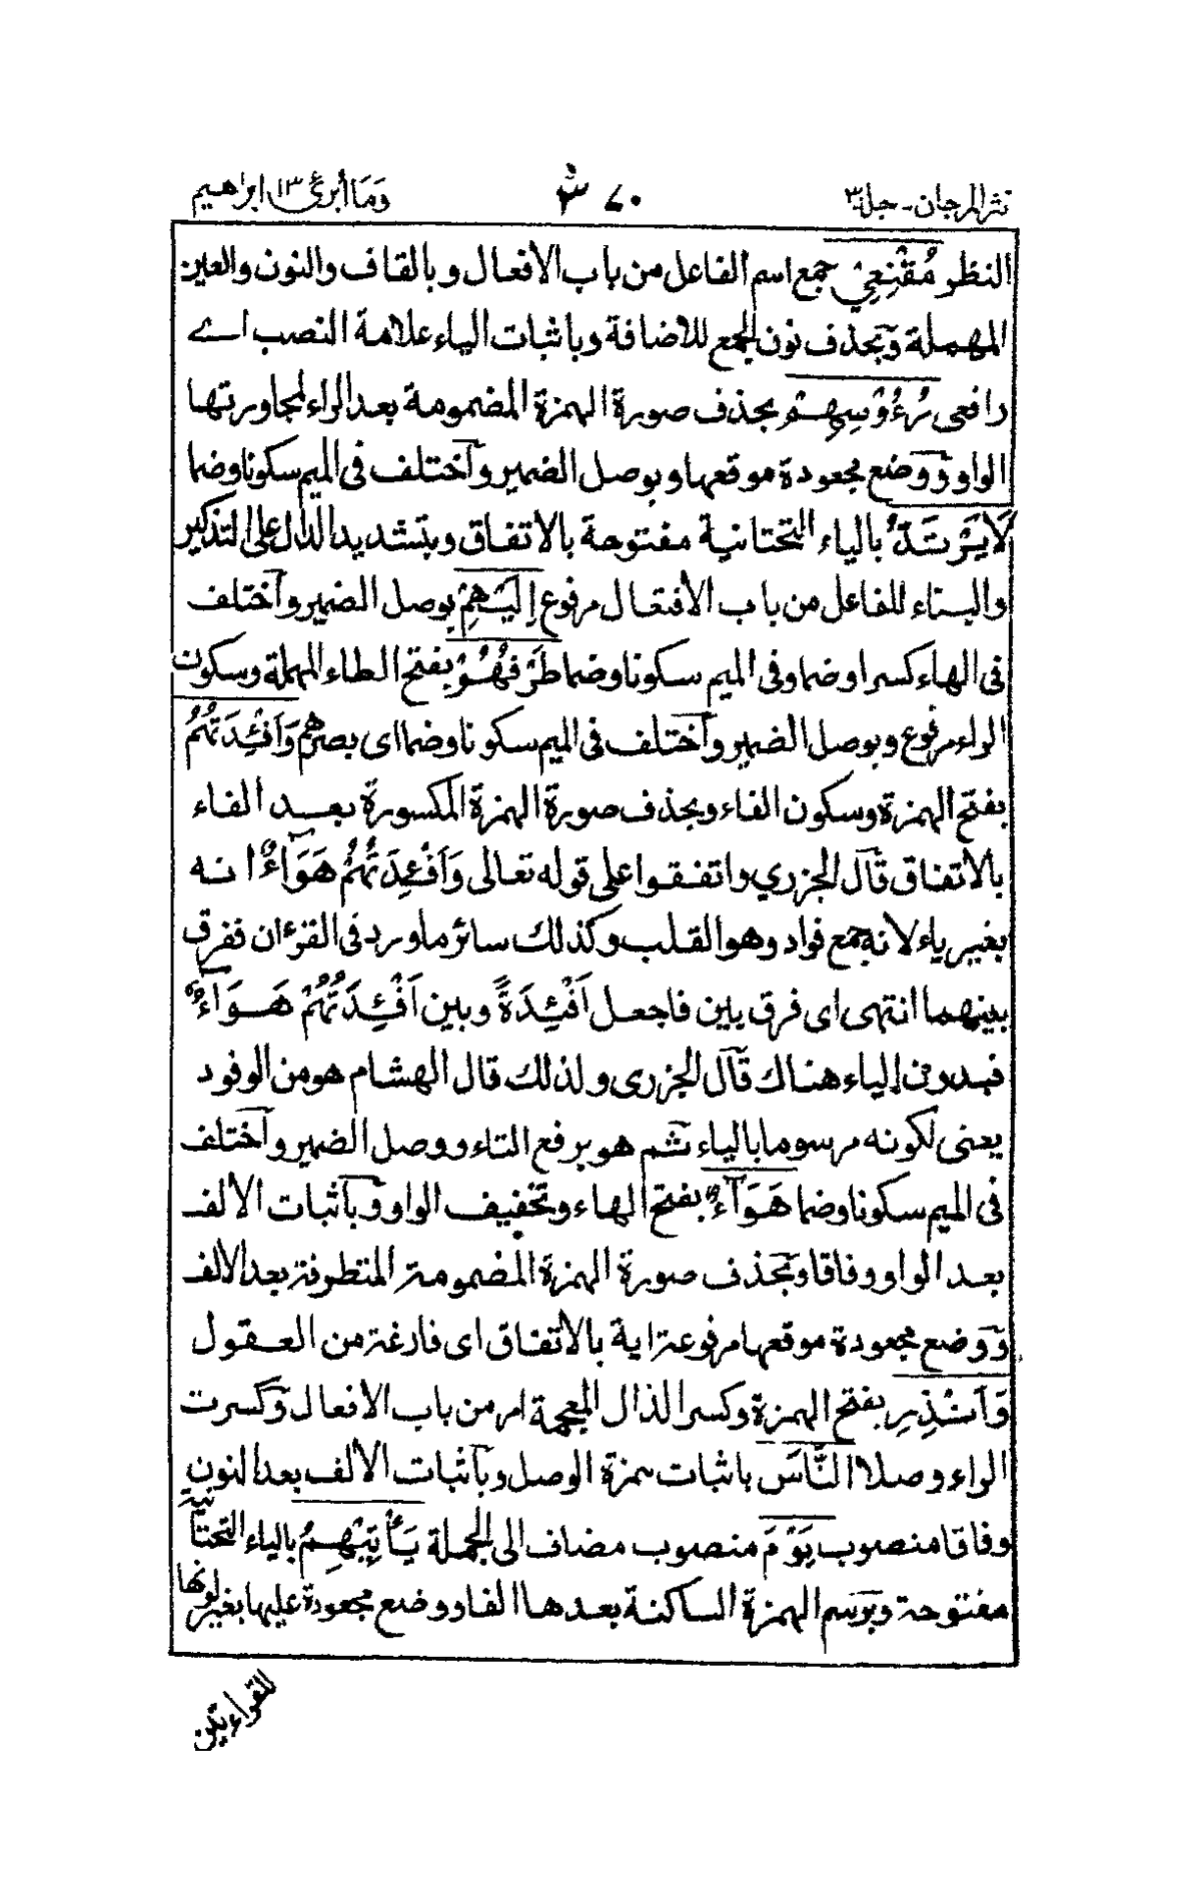 نثر المرجان ـ جلد ٣
٧٠
وَمَا أبرئ ١٣ ابراهيم
النظر مُقْنِعِيْ جمع اسم الفاعل من باب الأفعال وبالقاف والنون والعين
المهملة وبحذف نون الجمع للاضافة وباثبات الياء علامة النصب اے
رافعى رُءُوْسِهِمْ بحذف صورة الهمزة المضمومة بعد الراء لمجاورتها
الواو ووضع مجعودة موقعها وبوصل الضمير وآختلف فى الميم سكونا وضما
لَايَرْتَدُّ بالياء التحتانية مفتوحة بالاتفاق وبتشديد الدال على التذكير
والبناء للفاعل من باب الأفتعال مرفوع إِلَيْهِمْ بوصل الضمير وآختلف
فى الهاء كسرا وضما وفى الميم سكونا وضما طَرْفُهُمْ بفتح الطاء المهملة وسكون
الراء مرفوع وبوصل الضمير وآختلف فى الميم سكونا وضما اى بصرهم وَاَفْئِدَتُهُمْ
بفتح الهمزة وسكون الفاء وبحذف صورة الهمزة المكسورة بعد الفاء
بالاتفاق قآل الجزري واتفقوا على قوله تعالى وَاَفْـِٔدَتُهُمْ هَوَآءٌ انه
بغير ياء لانه جمع فواد وهو القلب وكذلك سائر ماورد فى القرءان ففرق
بينهما انتهى اى فرق بين فاجعل اَفْئِدَةً وبين اَفْئِدَتُهُمْ هَوَآءٌ
فبدون الياء هناك قآل الجزرى ولذلك قال الهشام هو من الوفود
يعنى لكونه مرسوما بالياء ثم هو برفع التاء ووصل الضمير وآختلف
فى الميم سكونا وضما هَوَآءٌ بفتح الهاء وتخفيف الواو وبآثبات الالف
بعد الواو وفاقا وبحذف صورة الهمزة المضمومة المتطرفة بعد الالف
ووضع مجعودة موقعها مرفوعة اية بالاتفاق اى فارغة من العقول
وَاَنْذِرِ بفتح الهمزة وكسر الذال المعجمة امر من باب الافعال وكسرت
الراء وصلا النَّاسَ باثبات همزة الوصل وبآثبات الألف بعد النون
وفاقا منصوب يَوْمَ منصوب مضاف الى الجملة يَـأْتِيْهِمُ بالياء التحتانية
مفتوحة وبرسم الهمزة الساكنة بعدها الفا ووضع مجعودة عليها بغير لونها
للقراءتين